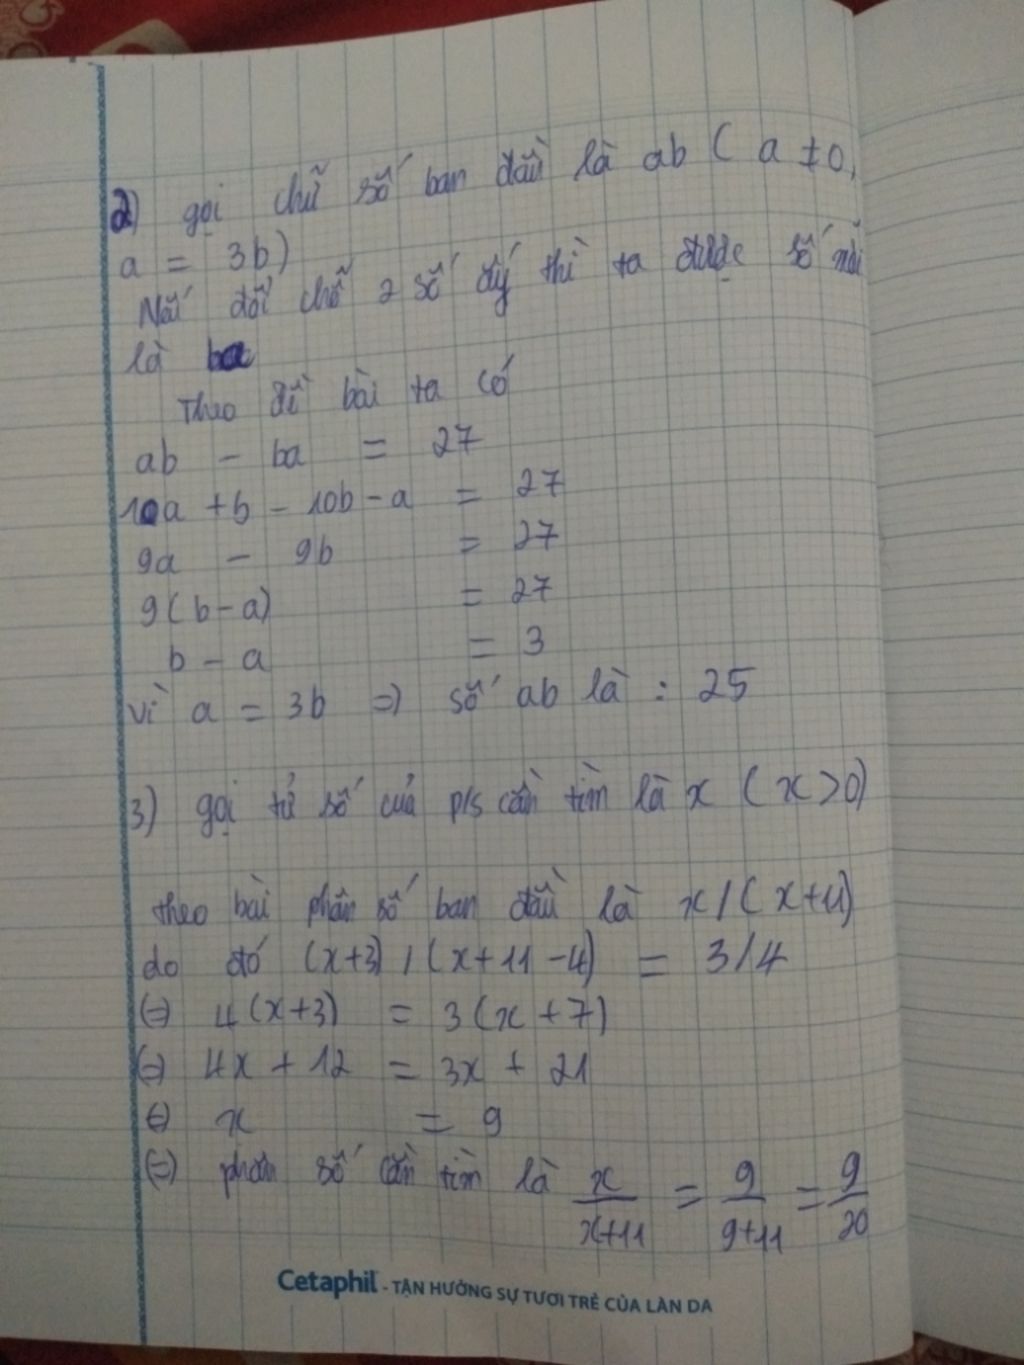 2) gọi chữ số ban đầu là ab ( a ≠ 0,
a = 3b)
Nếu đổi chỗ 2 số ấy thì ta được số mới
là ba
Theo đề bài ta có
ab - ba = 27
10a + b - 10b - a = 27
9a - 9b = 27
9(b-a) = 27
b - a = 3
vì a = 3b => số ab là : 25
3) gọi tử số của p/s cần tìm là x (x>0)
theo bài phân số ban đầu là x/(x+11)
do đó (x+3) / (x+11-4) = 3/4
(=) 4(x+3) = 3(x+7)
(=) 4x + 12 = 3x + 21
(=) x = 9
(=) phân số cần tìm là x/x+11 = 9/9+11 = 9/20
Cetaphil - TẬN HƯỞNG SỰ TƯƠI TRẺ CỦA LÀN DA